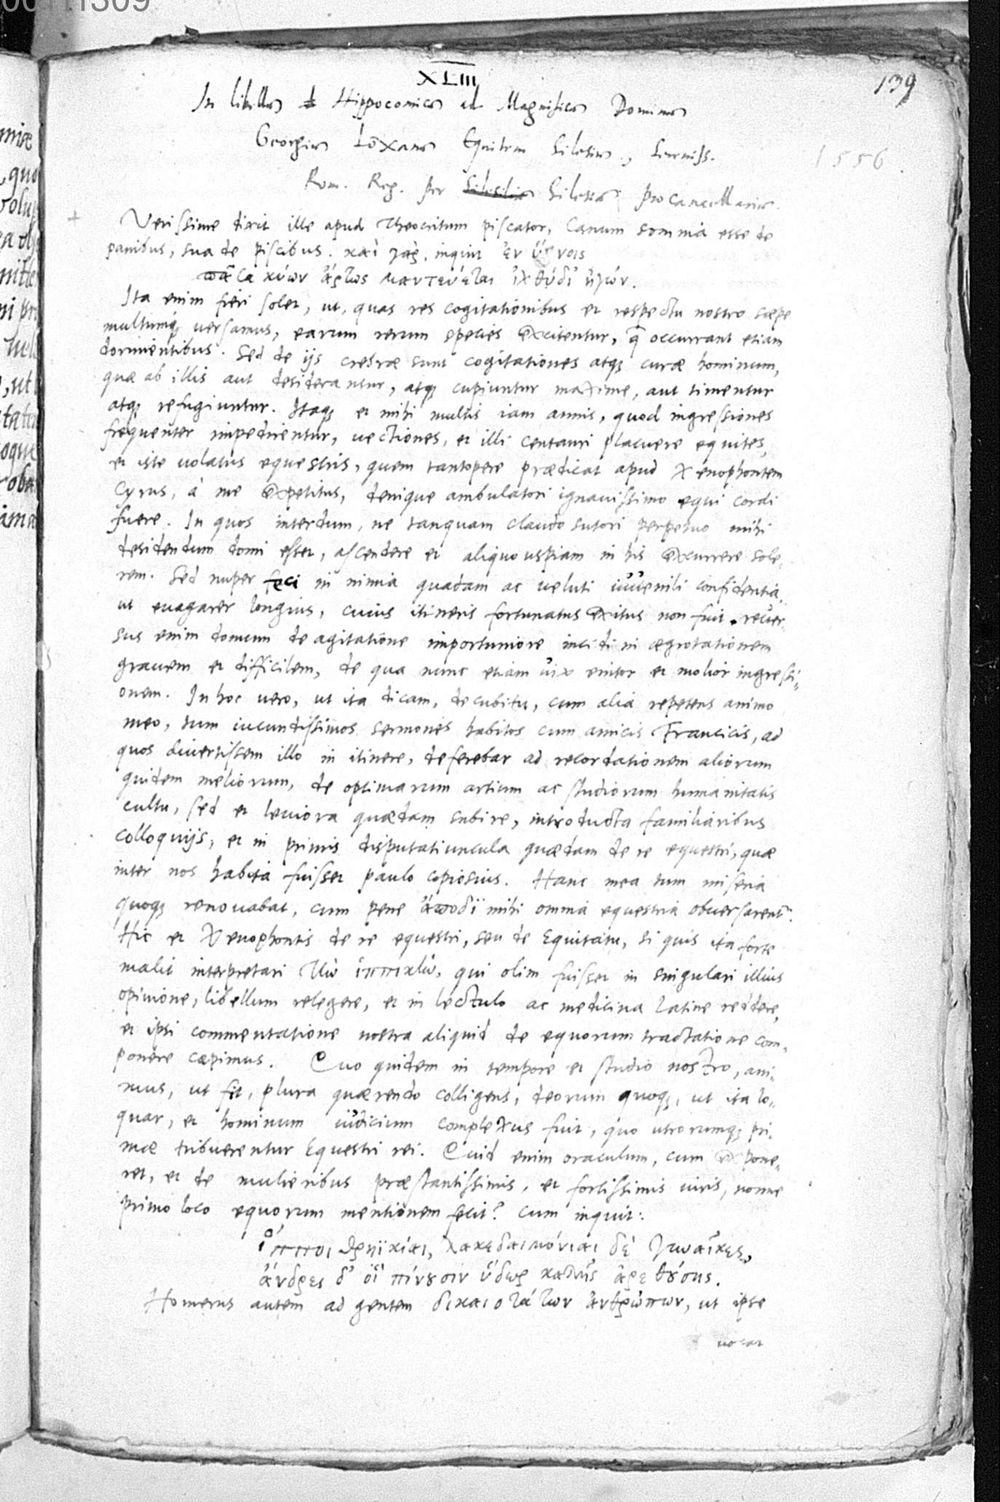 XLIII
139
In libellos de Hippocomicos ad Magnificum Dominum
Georgium Loxanum Equitem Silesium, Sereniss.
1556
Rom. Reg. per Silesiam procancellarium.
Verissime dixit ille apud Theocritum piscator, Canum somnia esse de
panibus, sua de piscibus. καὶ γὰρ, inquit ἐν ὕπνοις
πᾶσα κύων ἄρτως μαντεύεται ἰχθύδι' ἠγών.
Ita enim fieri solet, ut, quas res cogitationibus et respectu nostro sæpe
multumq; versamus, earum rerum species excitentur, q̃ occurrant etiam
dormientibus. Sed de ijs crebræ sunt cogitationes atq; curæ hominum,
quæ ab illis aut desiderantur, atq; cupiuntur maxime, aut timentur
atq; refugiuntur. Itaq; et mihi multis iam annis, quod ingressiones
frequenter impedirentur, uectiones, et illi centauri placuere equites,
et iste uolatus equestris, quem tantopere prædicat apud Xenophontem
Cyrus, à me expetitus, denique ambulatori ignauissimo equi cordi
fuere. In quos interdum, ne tanquam claudo sutori perpetuo mihi
desidendum domi esset, ascendere et aliquo uspiam in his excurrere sole,
rem. Sed nuper feci in nimia quadam ac ueluti iuuenili confidentia,
ut euagarer longius, cuius itineris fortunatus exitus non fuit. reuer
sus enim domum de agitatione importuniore incidi in ægrotationem
grauem et difficilem, de qua nunc etiam uix enitor et molior ingressi,
onem. In hoc uero, ut ita dicam, decubitu, cum alia repetens animo
meo, tum iucundissimos sermones habitos cum amicis Francicis, ad
quos diuertissem illo in itinere, deferebar ad recordationem aliorum
quidem meliorum, de optimarum artium ac studiorum humanitatis
cultu, sed et leuiora quædam subire, introducta familiaribus
colloquijs, et in primis disputatiuncula quædam de re equestri, quæ
inter nos habita fuisset paulo copiosius. Hanc mea tum miseria
quoq; renouabat, cum pene ἄποδι mihi omnia equestria obuersarent̃.
Hic et Xenophontis de re equestri, seu de Equitatu, si quis ita forte
malit interpretari τὴν ἱππικὴν, qui olim fuisset in singulari illius
opinione, libellum relegere, et in lectulo ac medicina latine reddere,
et ipsi commentatione nostra aliquid de equorum tractatione com,
ponere cæpimus. Quo quidem in tempore et studio nostro, ani,
mus, ut fit, plura quærendo colligens, deorum quoq;, ut ita lo,
quar, et hominum iudicium complexus fuit, quo utrorumq; pri,
mæ tribuerentur Equestri rei. Quid enim oraculum, cum expone,
ret, et de mulieribus præstantissimis, et fortissimis uiris, nonne
primo loco equorum mentionem fecit? cum inquit:
ἵπποι θρηϊκίαι, λακεδαιμόνιαι δέ γυναῖκες,
ἄνδρες δ' οἳ πίνουσιν ὕδωρ καλῆς ἀρεθούσης.
Homerus autem ad gentem δικαιοτάτων ἀνθρώπων, ut ipse
uocat